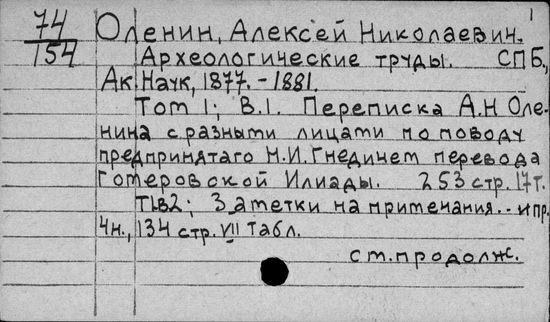 1
74 Оленин, Алексей Николаевич.
154 Археологические труды. СПБ.,
Ак. Наук, 1877. - 1881.
Том 1; В.1. Переписка А.Н Оле-
нина с разными лицами по поводу
предпринятаго Н.И. Гнедичем перевода
Гомеровской Илиады. 253 стр. 17 т.
Т1.в2; Заметки на примечания. - и пр.
4н., 134 стр. VII табл.
см. продолж.